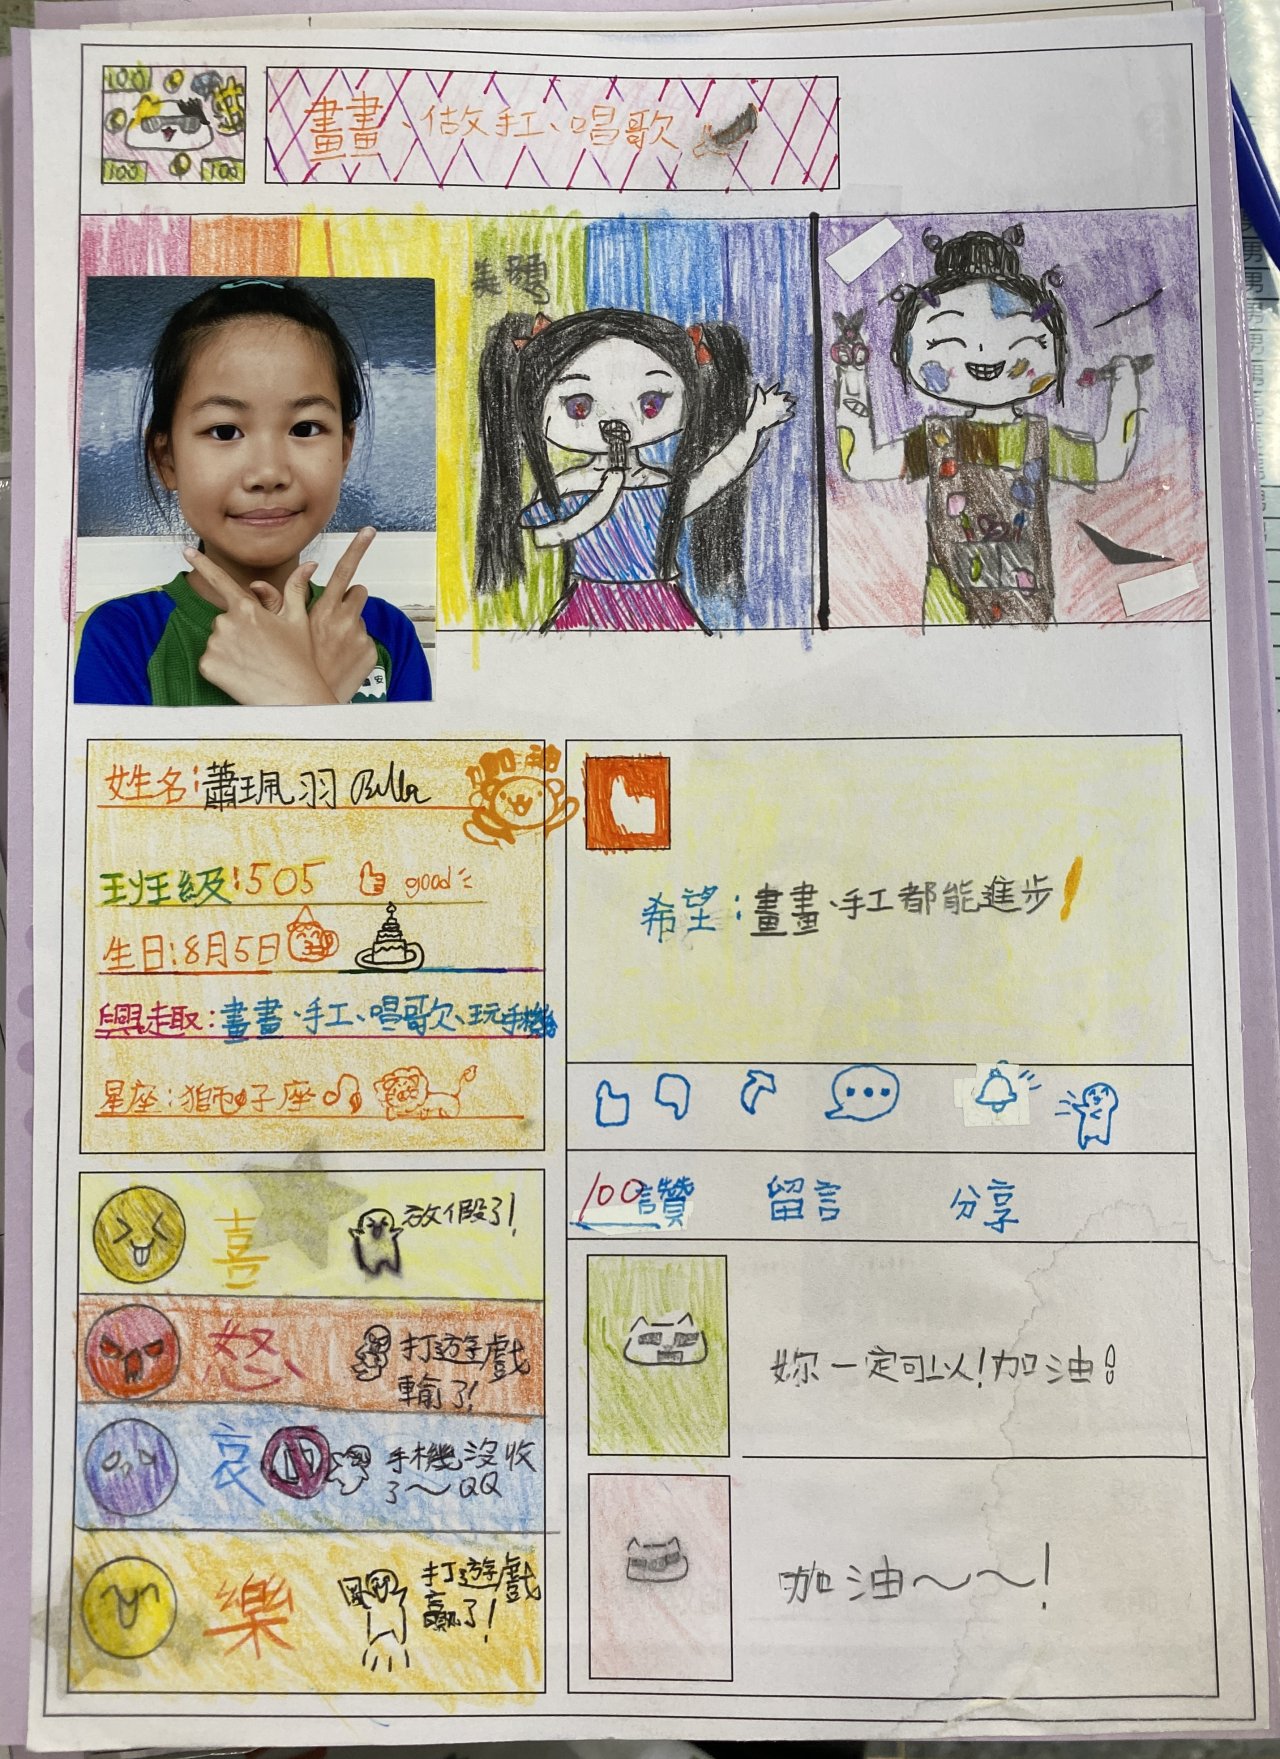 100
100
100
畫畫、做手工、唱歌
美頌
安
姓名:蕭珮羽 Bella
加油
班級:505 good
生日:8月5日
興趣:畫畫、手工、唱歌、玩手機
星座:獅子座
希望:畫畫、手工都能進步!
100讚 留言 分享
喜 放假了!
怒 打遊戲
輸了!
哀 手機沒收
了~QQ
樂 打遊戲
贏了!
妳一定可以!加油!
加油~~!